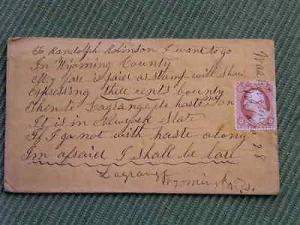 To Randolph Robinson I want to go
In Wyoming County
My fare is paid as stamp will show
Expressing three cents bounty
Then to Lagrange haste on
If it is in Newyork State
If I go not with haste along
I'm afraid I shall be late
Lagrange
Wyoming
28